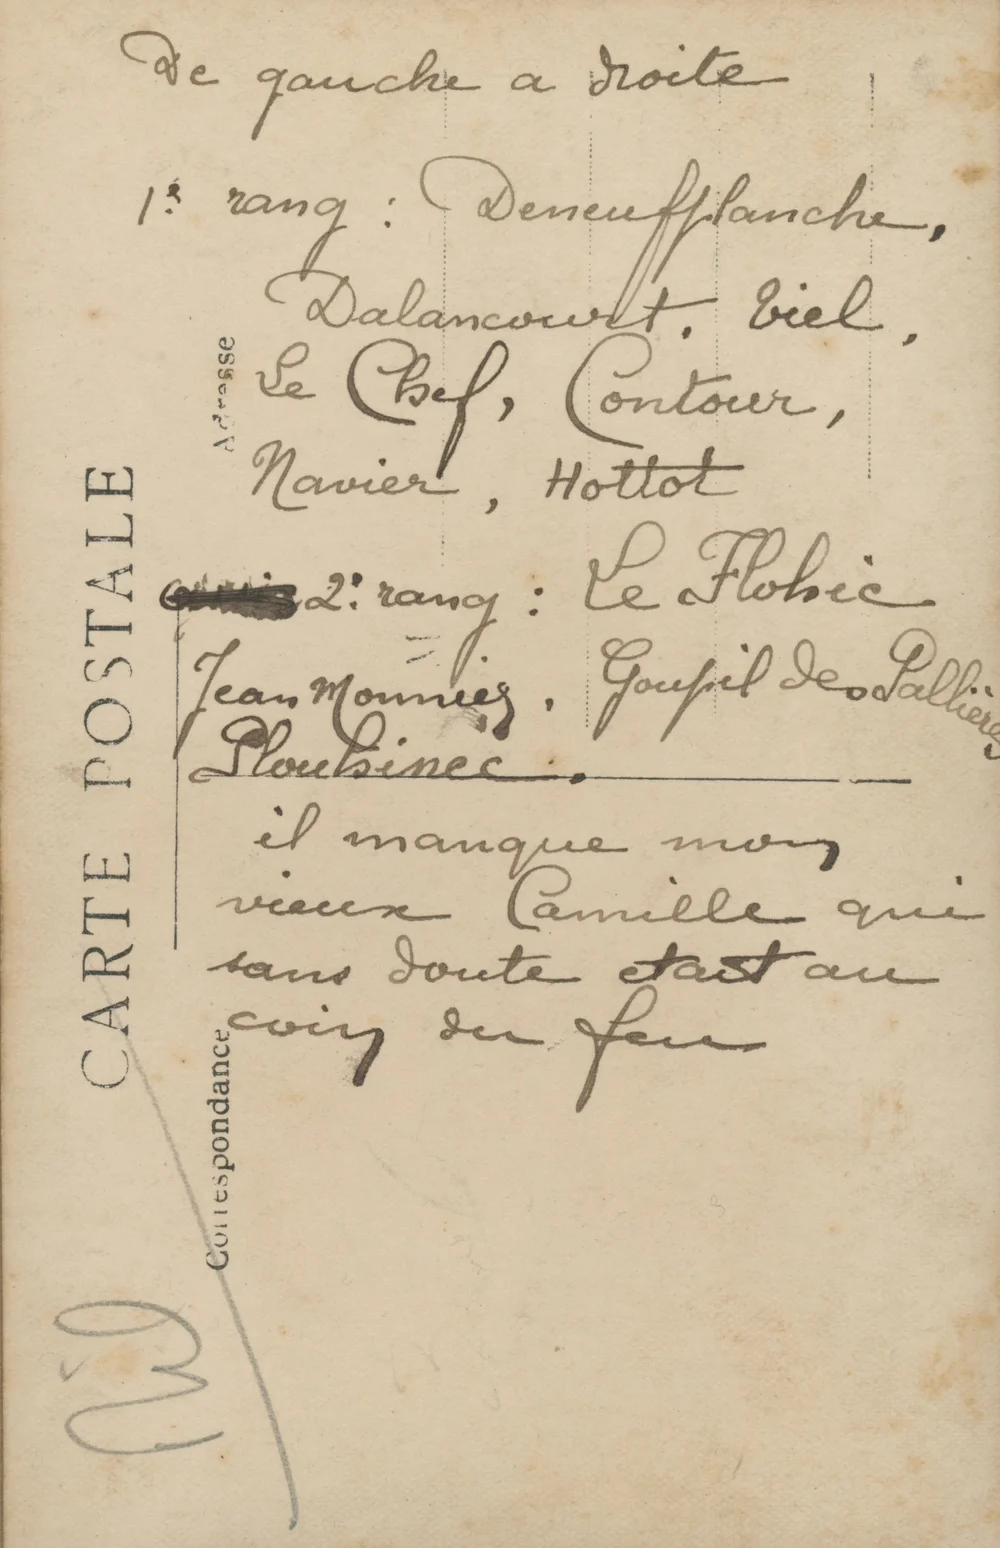 De gauche a droite
1r rang : Deneufplanche,
Dalancourt, Viel,
Le Chef, Contour,
Navier, Hottot
2e rang : Le Flohic
Jean Monnier, Goupil des Pallières
Plouhinec.
il manque mon
vieux Camille qui
sans doute etait au
coin du feu
CARTE POSTALE
Adresse
Correspondance